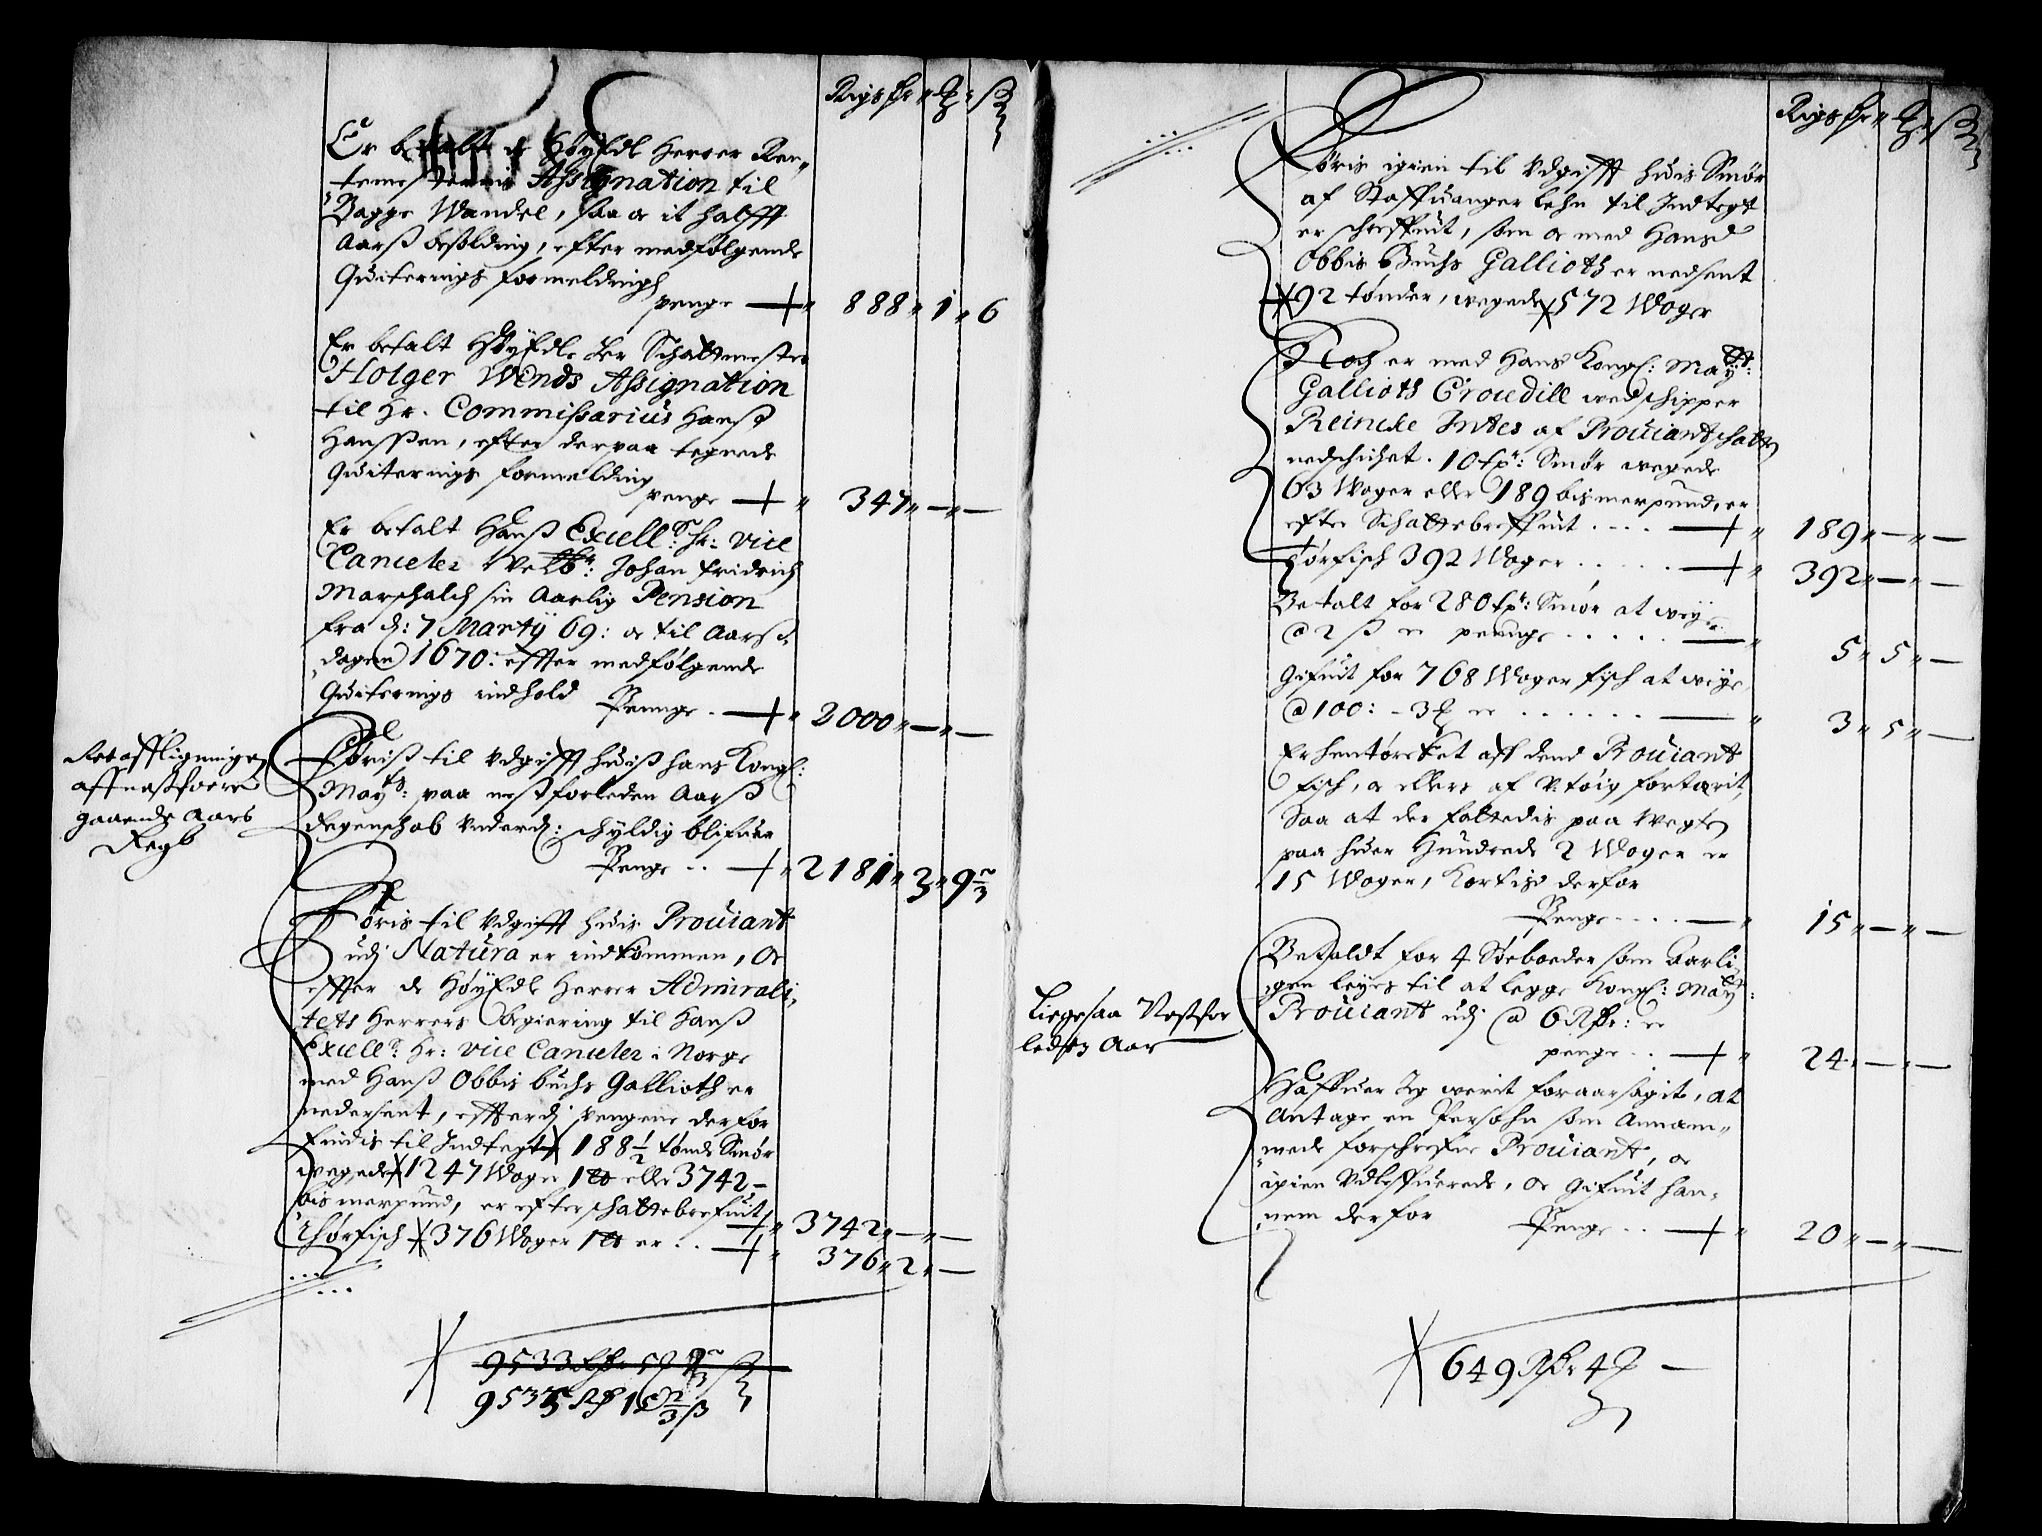 Rigsdr: ꝑ: ß
Er betalt de Høyedl Herrer Ren„
temesterens Assignation til
Bagge Wandel, saa er it halfft
Aarß besolding, efter medfølgende
Qviterings formelding
penge — 888„ 1„ 6
Er betalt Høyedl. Her Schattmester
Holger Wends Assignation
til Hr. Commissarius Hanß
Hanssen, efter derpaa tegnede
Qviterings formelding
penge — 347„ — „ —
Er betalt Hanß Excell: Hr: vice
Canceler Velb: Johan Fridrich
Marschalch sin Aarlig Pension
fra d: 7 Martij 69: oc til Aarsz
dagen 1670: effter medfølgende
Qviterings indhold Penge . — 2000„ — „ —
Ret affligningen
aff nestforre
gaaende Aars
Regb
Føris til Udgifft huis hans Kongl:
Mayts: paa nestforleden Aarß
Regenschab Underd: schyldig blifuer
Penge .. — 2181„ 3„ 9 2/3
Føris til Udgifft huis Prouiant
udj Natura er indkommen, Oc
effter de Høyedl Herrer Admirali„
tets Herrers Begiering til Hanß
Excell: Hr: vice Canceler i Norge
med Hanß Obbis buchs Gallioth er
nedersent, efftterdj pengene derfor
findis til Indtegt 188 1/2 tønde Smør
wegede 1247 Woger 1 ℔ eller 3742 –
bismerpund, er efter schattebrefuit — 3742„ — „ —
Thørfisch 376 Woger 1 ℔ er . . — 376„ 2„ —
9533 Rdr 5
9535 Rdr 1 2/3 ß
Rigsdr: ꝑ: ß
Føris igien til Udgifft huis Smør
af Staffuanger Lehn til Indtegt
er schreffuit, som er med Hans
Obbis Buchs Gallioth er nedsent
92 tønder, wegede 572 Woger
Noch er med Hans Kongl: Mayts:
Gallioth Crocedill wed schipper
Reincke Intes af Prouiantschatten
nedschichet. 10 tpr: Smør wegede
63 Woger eller 189 bismerpund, er
efter Schattebreffuit . . . . — 189„ — „ —
Tørfisch 392 Woger . . . . . — 392„ — „ —
Betalt for 280 tpr: Smør at weye
@ 2 ß er penge . . . . . — 5„ 5„ —
Gifuit for 768 Woger fisch at weye,
@ 100: – 3 ꝑ er . . . . . . — 3„ 5„ —
Er hentørcket aff dend Prouiant
fisch, oc ellers af Utøig fortærit,
Saa at der fattedis paa Wegten
paa huer Hundrede 2 Woger er
15 Woger, Kortis derfor
Penge . . . . — 15„ — „ —
Ligesaa Nestfor
leden Aar
Betaldt for 4 Søeboeder som Aarli„
gen leyes til at legge Kongl: Mayts:
Prouiant udj @ 6 Rdr: er
penge . . — 24„ — „ —
Haffuer Jeg werit foraarsagit, at
Antage en Persohn som Annam„
mede forschrefne Prouiant, oc
igien Udleffuerede, oc Gifuit han„
nem derfor Penge . . — 20„ — „ —
649 Rdr 4 ꝑ —